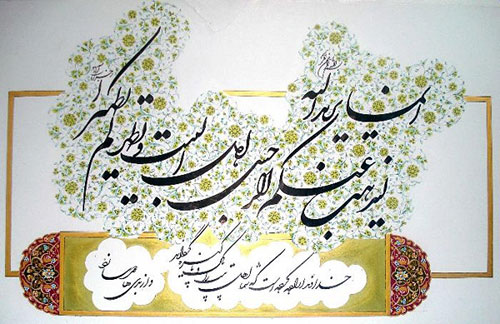 انما یرید الله
لیذهب عنکم الرجس اهل البیت و یطهرکم تطهیرا
خداوند اراده کرده است که شما اهل بیت را پاکیزه گرداند
و از بدی ها